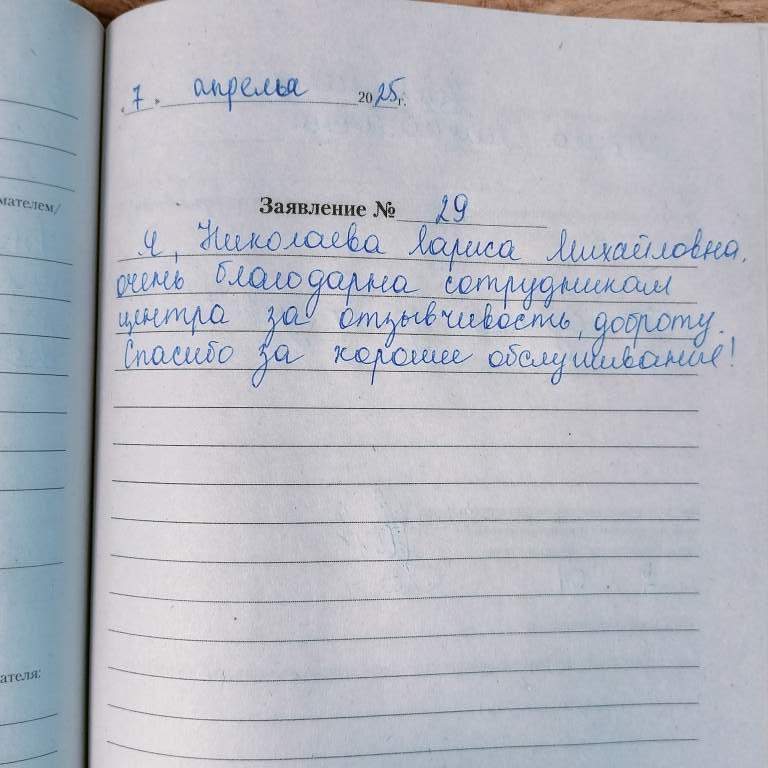 «7» апреля 2025г.
Заявление № 29
Я, Николаева Лариса Михайловна,
очень благодарна сотрудникам
центра за отзывчивость, доброту.
Спасибо за хорошее обслуживание!
мателем/
ателя: